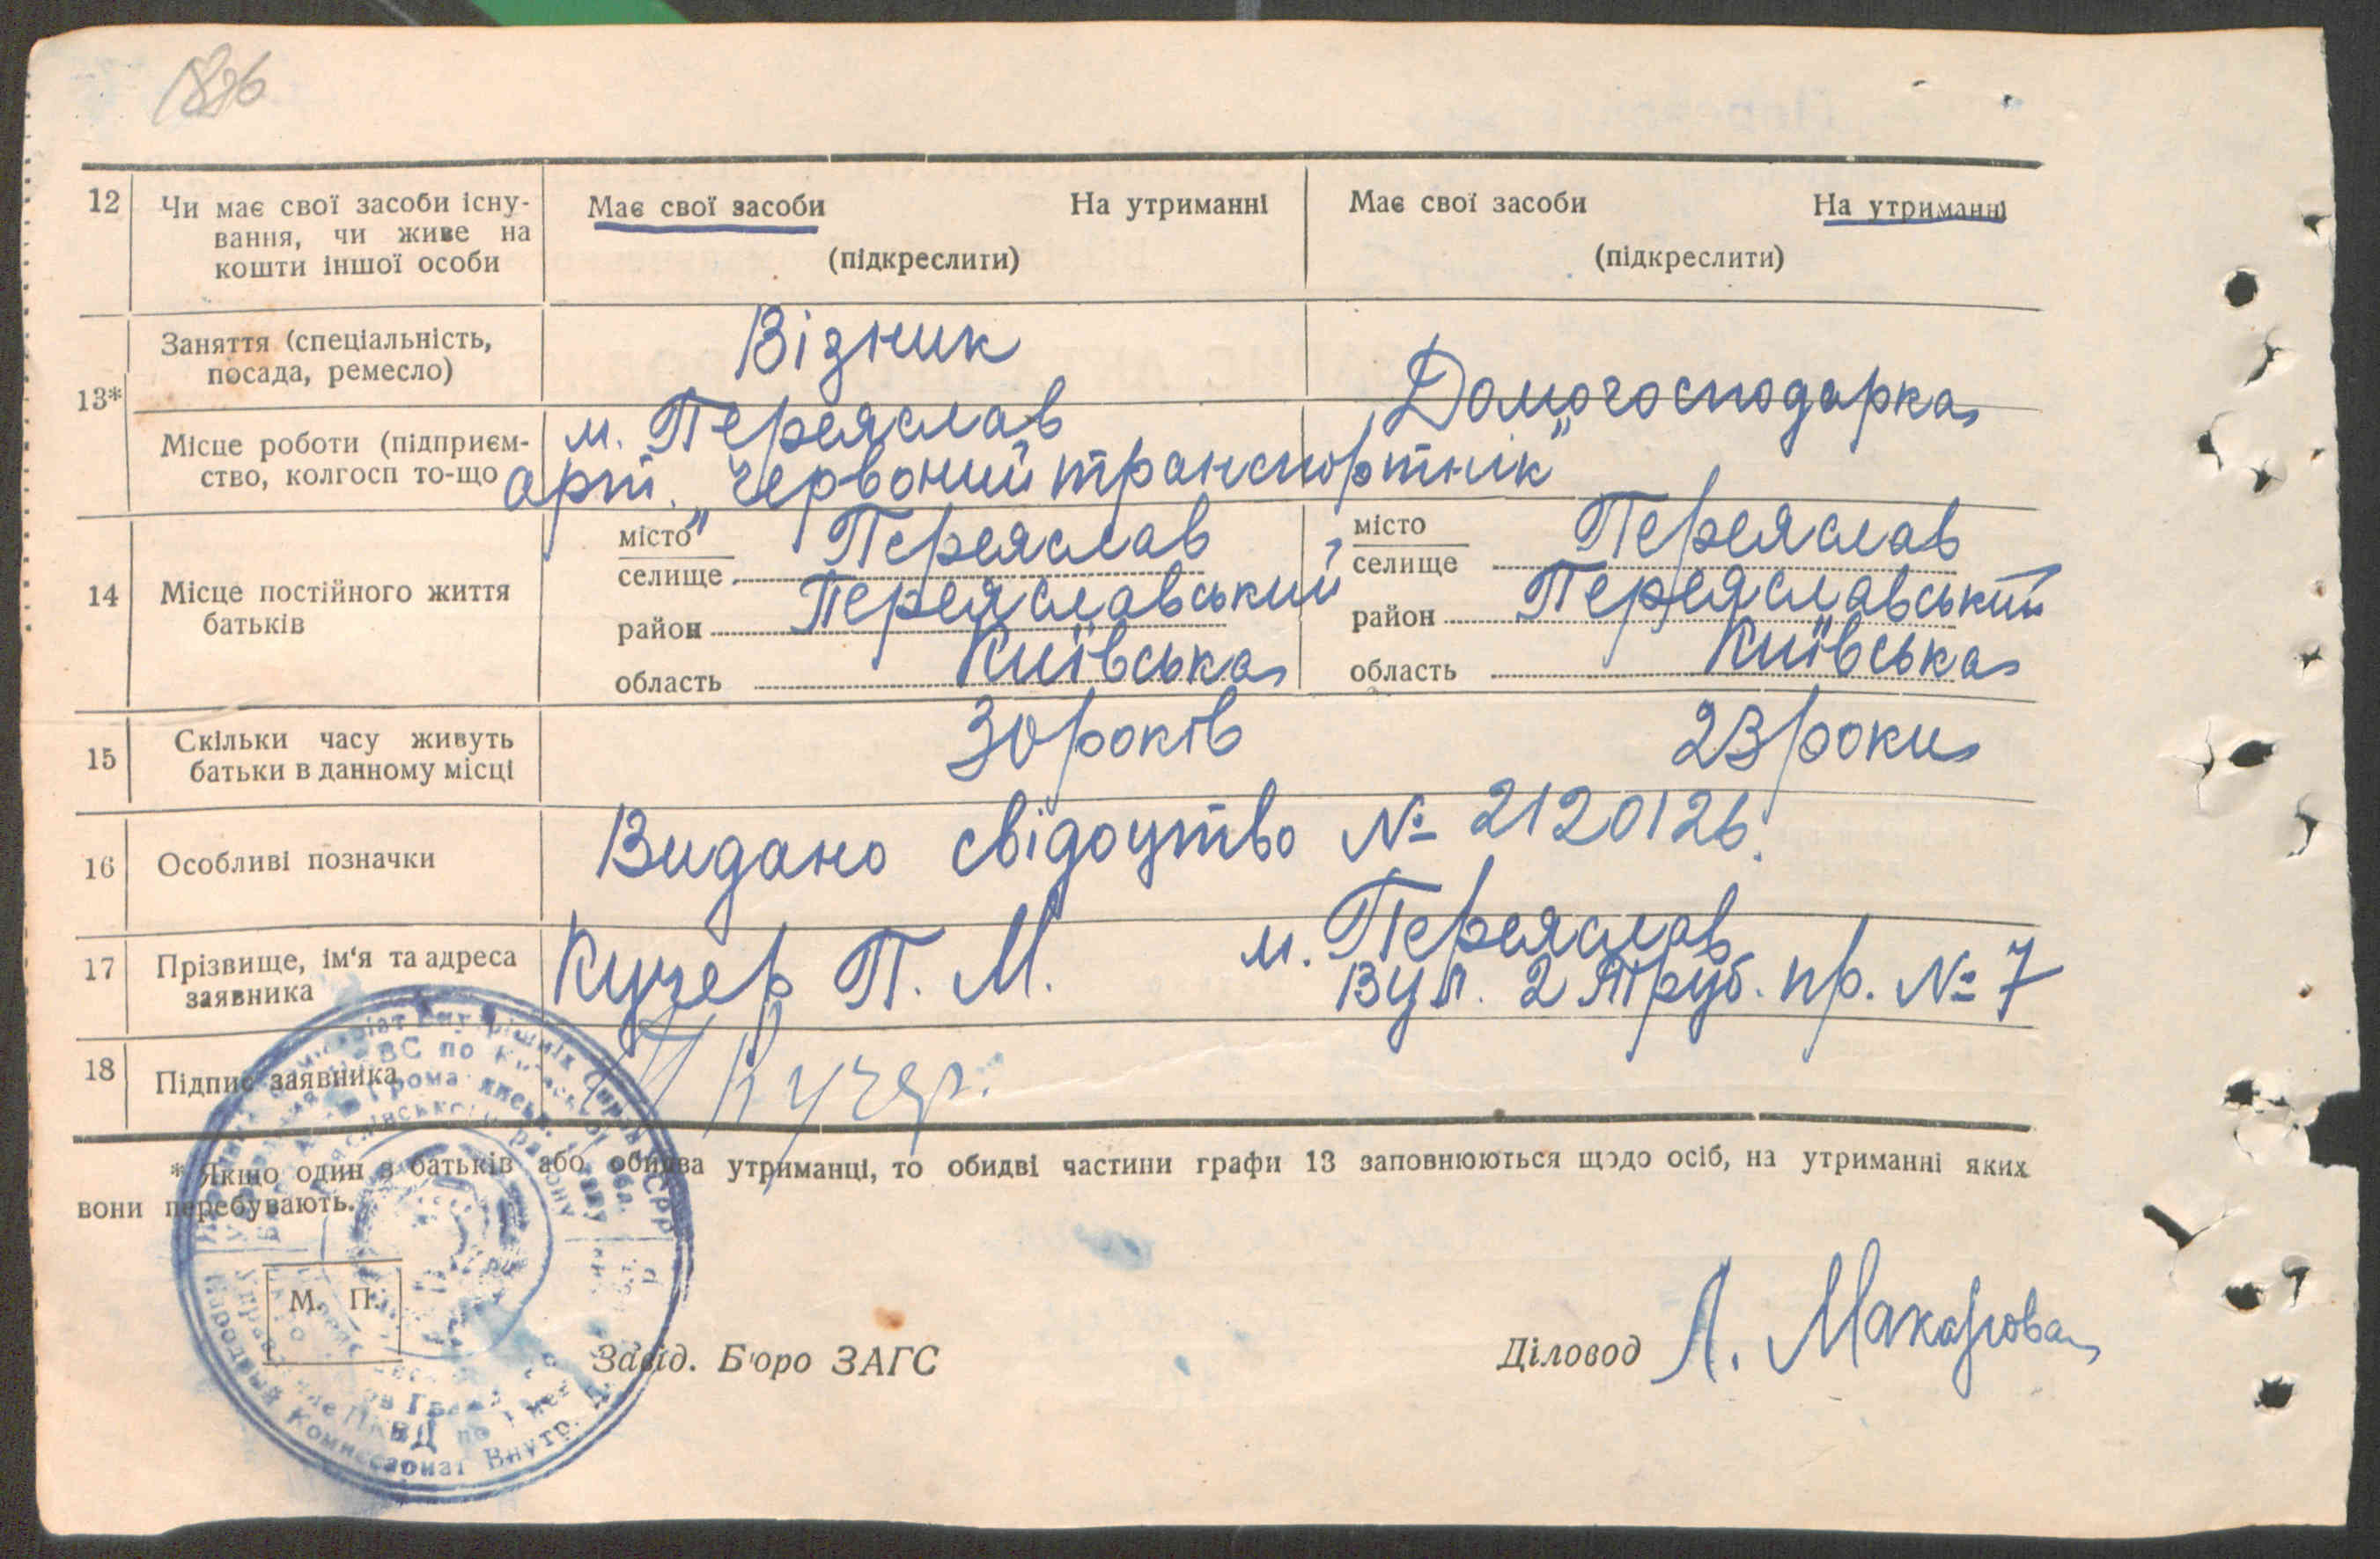 1826
12 Чи має свої засоби існу-
вання, чи живе на
кошти іншої особи
Має свої засоби На утриманні
(підкреслити)
Має свої засоби На утриманні
(підкреслити)
13*
Заняття (спеціальність,
посада, ремесло)
Візник
Домогосподарка
Місце роботи (підприєм-
ство, колгосп то-що
м. Переяслав
арт. „Червоний транспортнік"
14 Місце постійного життя
батьків
місто
селище Переяслав
район Переяславський
область Київська
місто
селище Переяслав
район Переяславський
область Київська
15 Скільки часу живуть
батьки в данному місці
30 років 23 роки
16 Особливі позначки
Видано свідоцтво № 2120126.
17 Прізвище, ім'я та адреса
заявника
Кучер П. М. м. Переяслав
Вул. 2 Труб. пр. № 7
18 Підпис заявника
Кучер.
* Якщо один з батьків або обидва утриманці, то обидві частини графи 13 заповнюються щодо осіб, на утриманні яких
вони перебувають.
М. П.
Завід. Бюро ЗАГС
Діловод Л. Макарова
Народный Комиссариат Внутр.